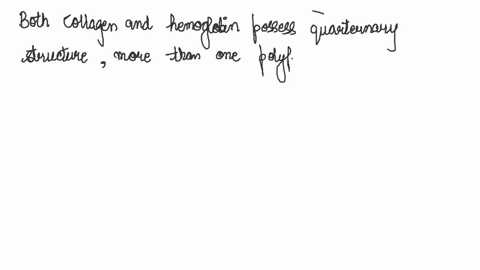 Both collagen and hemoglobin possess quarternary
structure, more than one polyp.